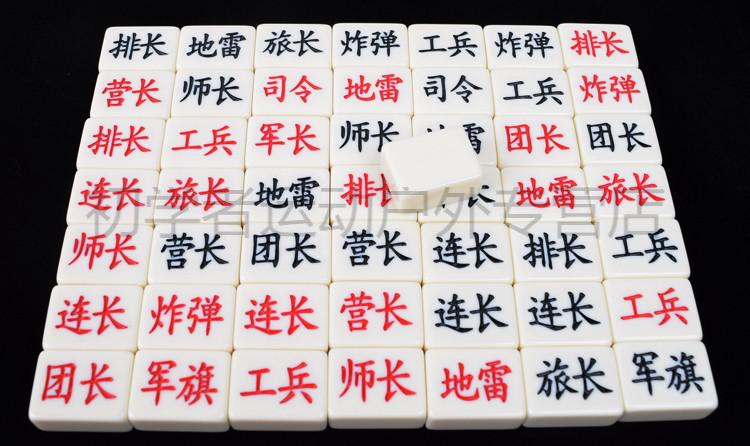 排长 地雷 旅长 炸弹 工兵 炸弹 排长
营长 师长 司令 地雷 司令 工兵 炸弹
排长 工兵 军长 师长 地雷 团长 团长
连长 旅长 地雷 排长 长 地雷 旅长
初学者运动户外专营店
师长 营长 团长 营长 连长 排长 工兵
连长 炸弹 连长 营长 连长 连长 工兵
团长 军旗 工兵 师长 地雷 旅长 军旗